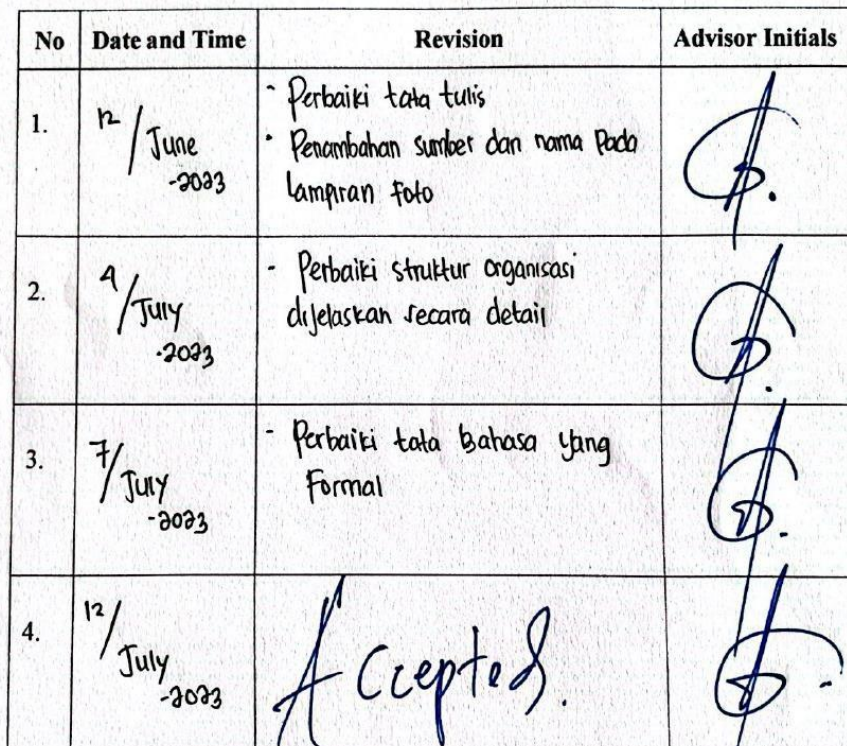 No Date and Time Revision Advisor Initials
1. 12/June-2023
- Perbaiki tata tulis
- Penambahan sumber dan nama pada
lampiran foto
2. 4/July-2023
- Perbaiki struktur organisasi
dijelaskan secara detail
3. 7/July-2023
- Perbaiki tata Bahasa yang
Formal
4. 12/July-2023
Accepted.